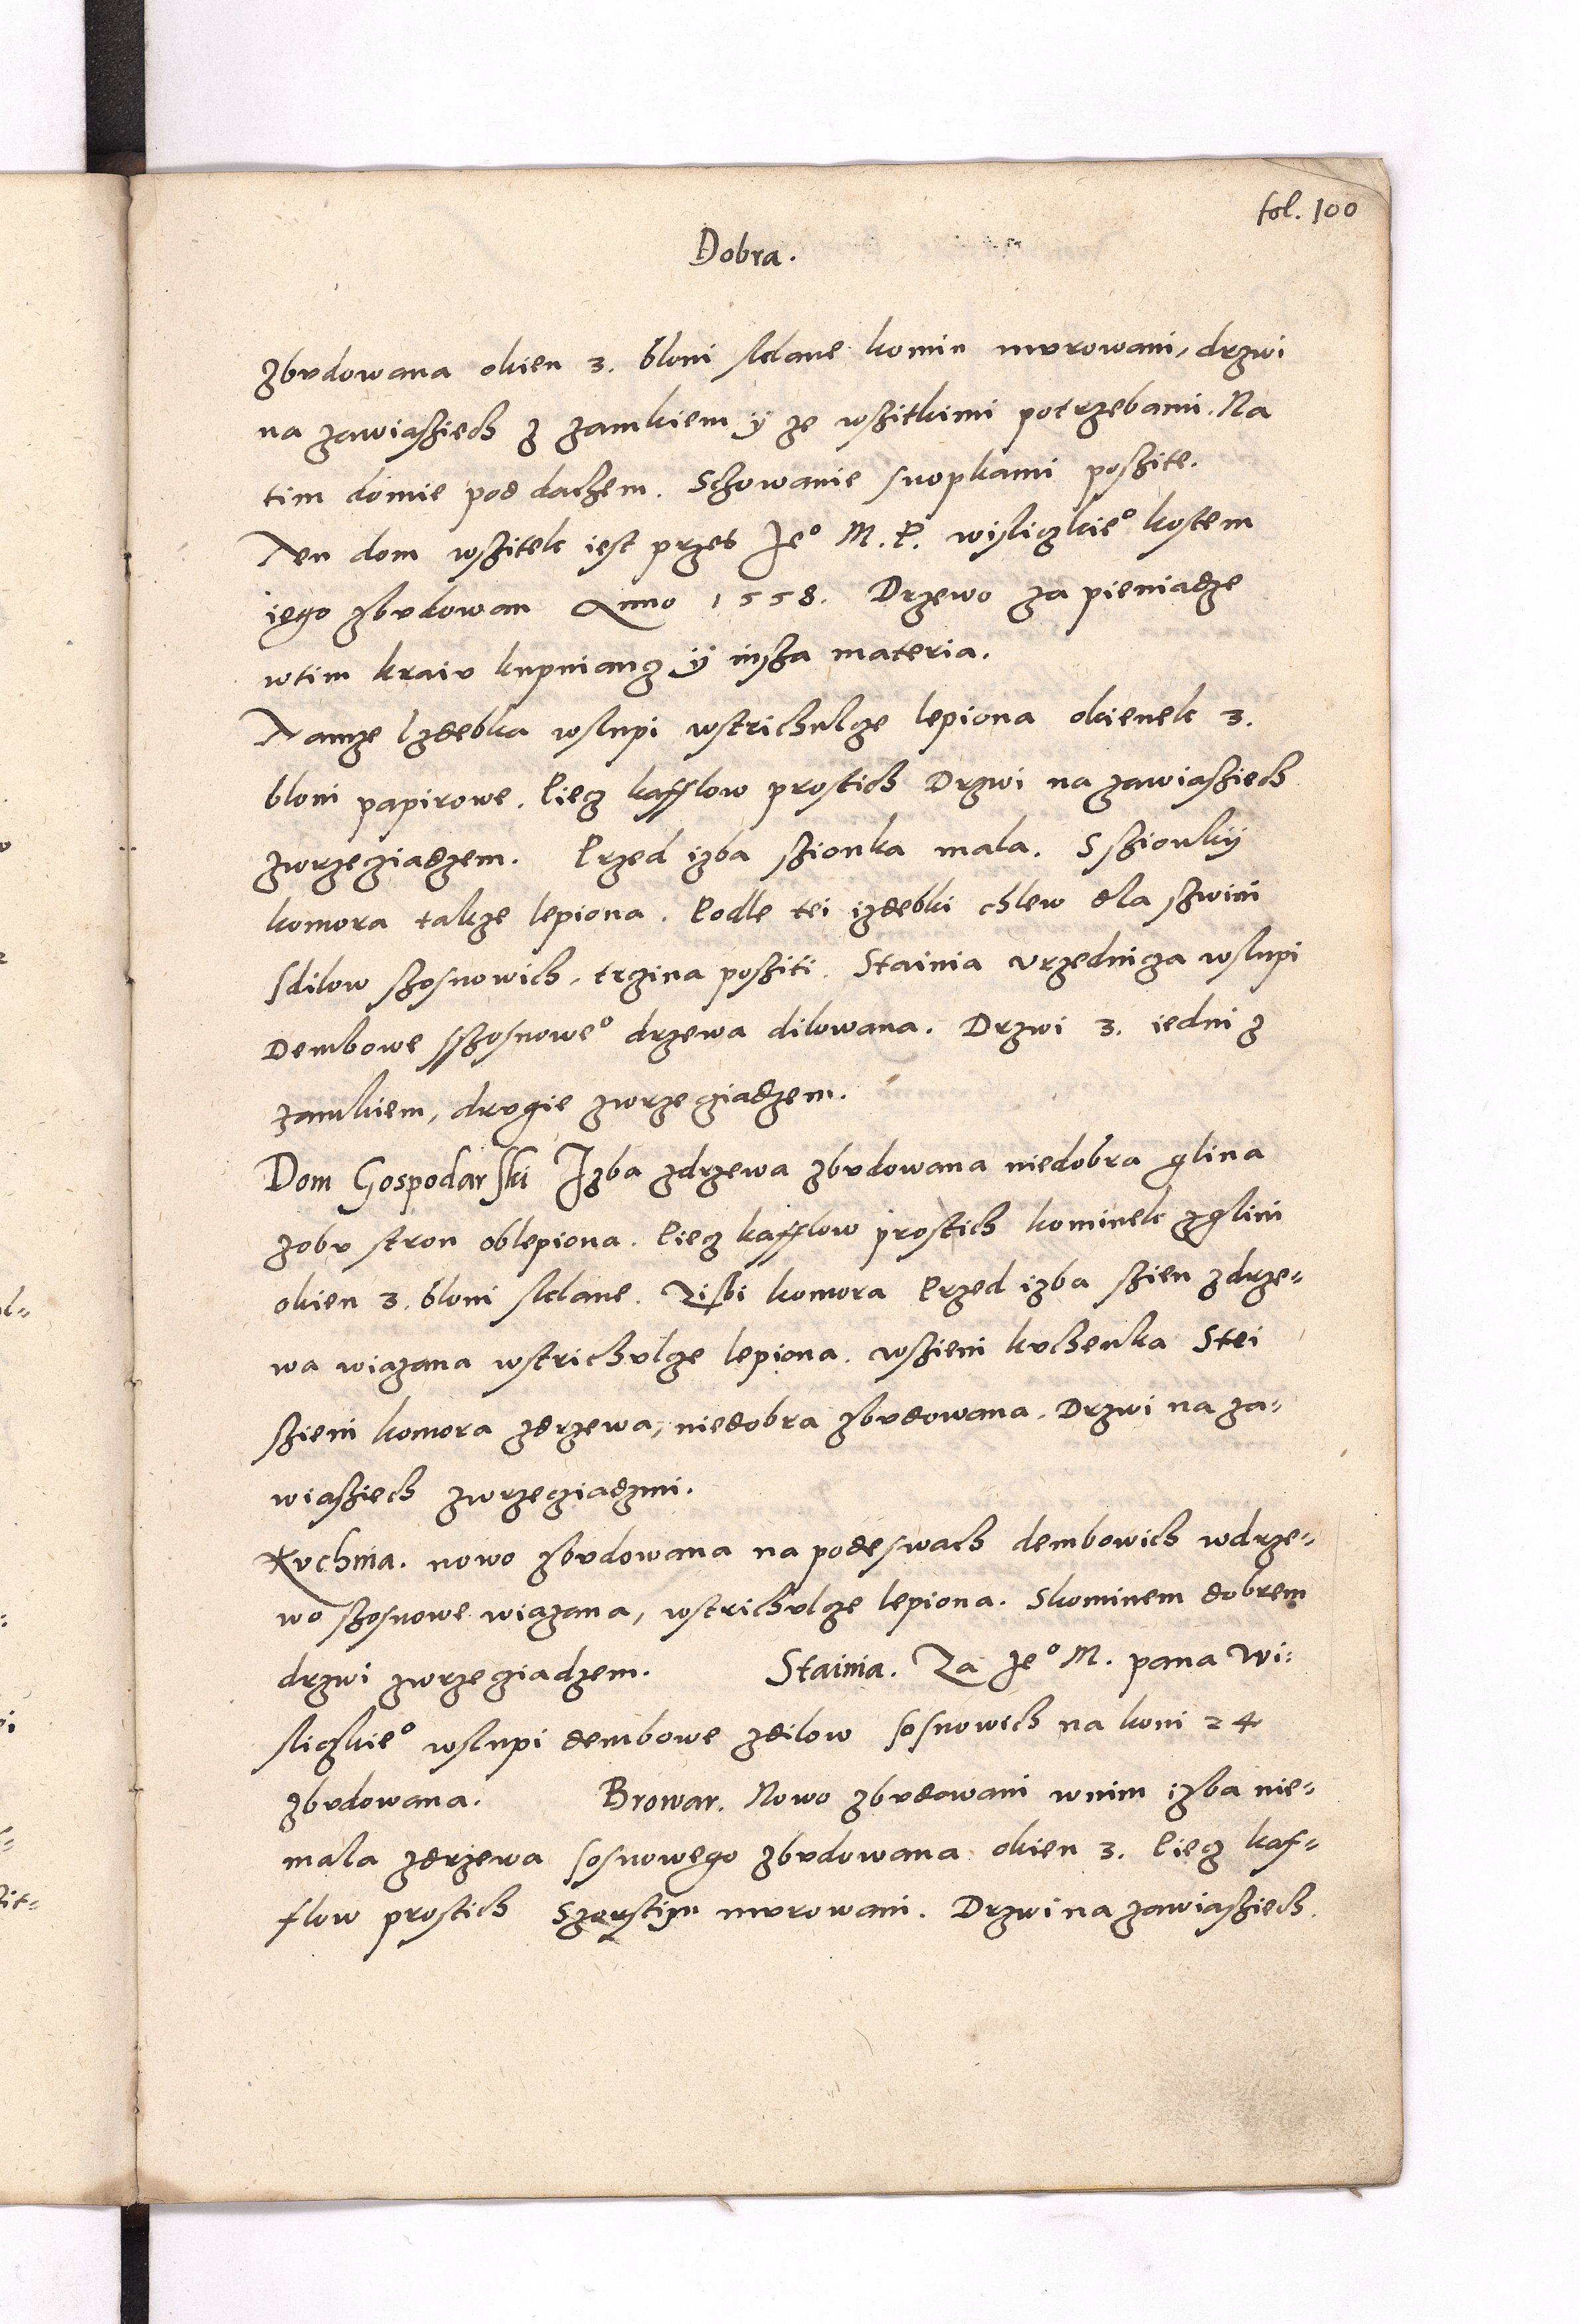 fol. 100
Dobra.
zbvdowana okien 3. bloni sklane komin mvrowani, drzwi
na zawiasziech z zamkiem ÿ ze wszitkimi potrzebami. Na
tim domie pod dachem. Schowanie snopkami poszite.
Ten dom wszitek iest przes Je° M. P. wisliczkie° kostem
iego zbvdowan Anno 1558. Drzewo za pieniadze
wtim kraiv kupniang ÿ insza materia.
Tamze Izdebka wslupi wstrichulcze lepiona okienek 3.
bloni papirowe. Piecz kafflow prostich Drzwi na zawiasziech
zwrzecziadzem. Przed izba szionka mala. S szionkÿ
komora takze lepiona. Podle tei izdebki chlew dla szwini
Sdilow szosnowich, trzina posziti. Stainia vrzednicza wslupi
Dembowe sszosnowe° drzewa dilowana. Drzwi 3. iedni z
zamkiem, drvgie zwrzecziadzem.
Dom Gospodarski Izba zdrzewa zbvdowana niedobra glina
zobv stron oblepiona. Piecz kafflow prostich kominek zglini
okien 3. bloni sklane. Zisbi komora Przed izba szien zdrze=
wa wiazana wstrichvlcze lepiona. wszieni kvchenka Stei
szieni komora zdrzewa, niedobra zbvdowana. Drzwi na za=
wiasziech zwrzecziadzmi.
Kvchnia. nowo zbvdowana na podeswach dembowich wdrze=
wo szosnowe wiazana, wstrichvlcze lepiona. Skominem dobrem
drzwi zwrzecziadzem. Stainia. Za Je° M. pana Wi=
sliczkie° wslupi dembowe zdilow sosnowich na koni 24
zbvdowana. Browar. Nowo zbvdowani wnim izba nie=
mala zdrzewa sosnowego zbvdowana okien 3. Piecz kaf=
flow prostich mvrowani. Drzwi na zawiasziech.